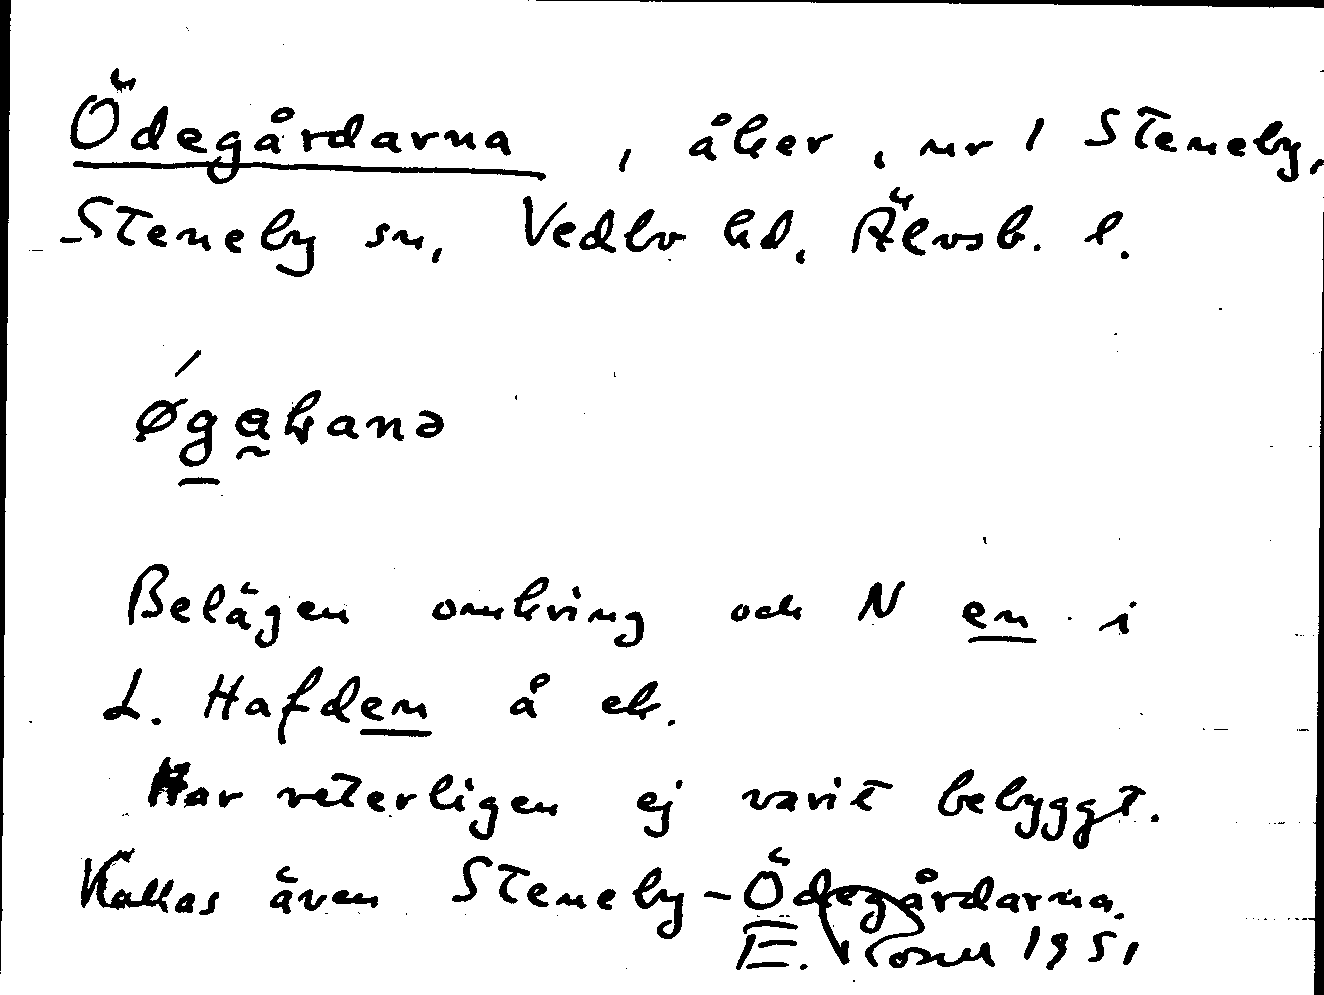 Ödegårdarna, åker, nr 1 Steneby,
Steneby sn, Vedbo hd, Älvsb. l.
Belägen omkring och N en i
L. Hafden å ek.
Har veterligen ej varit bebyggt.
Kallas även Steneby-Ödegårdarna.
E. 1951